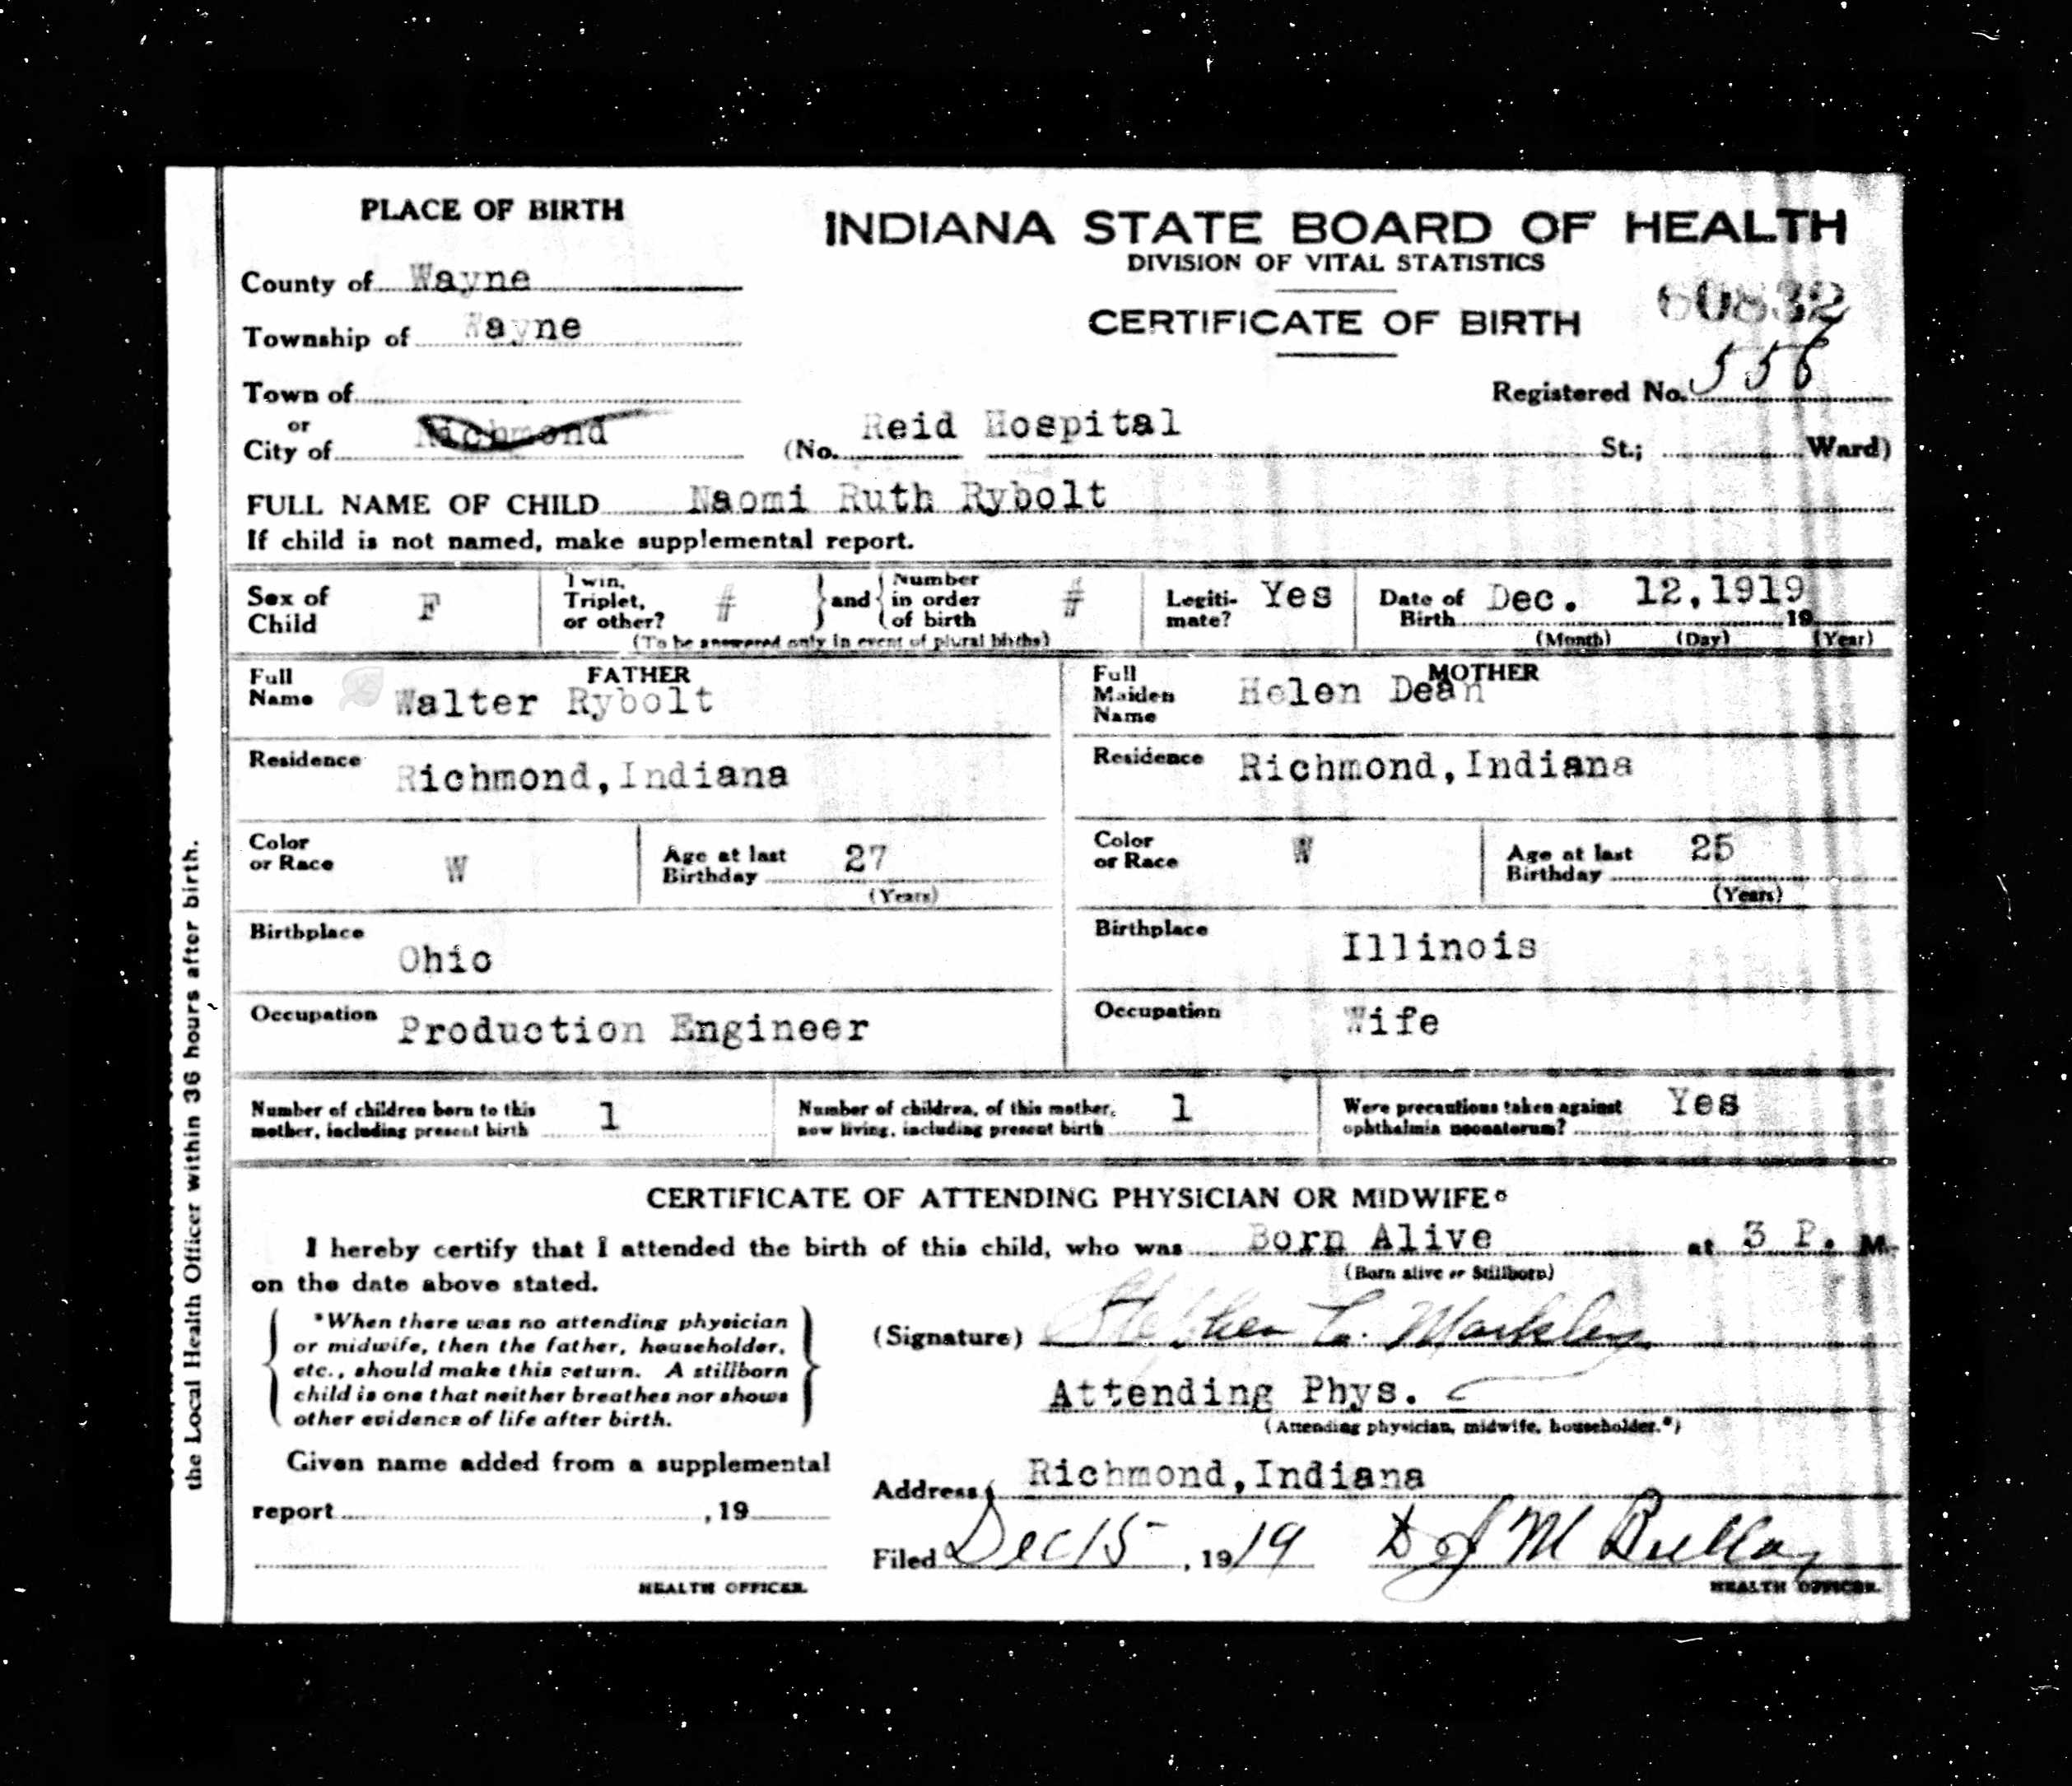 PLACE OF BIRTH
INDIANA STATE BOARD OF HEALTH
DIVISION OF VITAL STATISTICS
CERTIFICATE OF BIRTH
60832
County of Wayne
Township of Wayne
Town of
or
City of Richmond
Registered No. 556
(No. Reid Hospital St.; Ward)
FULL NAME OF CHILD Naomi Ruth Rybolt
If child is not named, make supplemental report.
Sex of Child F
Twin, Triplet, or other? # and Number in order of birth #
(To be answered only in event of plural births)
Legiti-mate? Yes
Date of Birth Dec. 12,1919 19
(Month) (Day) (Year)
FATHER
Full Name Walter Rybolt
MOTHER
Full Maiden Name Helen Dean
Residence Richmond,Indiana
Residence Richmond,Indiana
Color or Race W
Age at last Birthday 27
(Years)
Color or Race W
Age at last Birthday 25
(Years)
Birthplace Ohio
Birthplace Illinois
Occupation Production Engineer
Occupation Wife
Number of children born to this mother, including present birth 1
Number of children, of this mother, now living, including present birth 1
Were precautions taken against ophthalmia neonatorum? Yes
CERTIFICATE OF ATTENDING PHYSICIAN OR MIDWIFE*
I hereby certify that I attended the birth of this child, who was Born Alive at 3 P. M.
(Born alive or Stillborn)
on the date above stated.
*When there was no attending physician
or midwife, then the father, householder,
etc., should make this return. A stillborn
child is one that neither breathes nor shows
other evidence of life after birth.
(Signature) Stephen L. Markley
Attending Phys.
(Attending physician, midwife, householder.*)
Given name added from a supplemental
report , 19
HEALTH OFFICER.
Address Richmond,Indiana
Filed Dec 15, 1919
HEALTH OFFICER.
the Local Health Officer within 36 hours after birth.